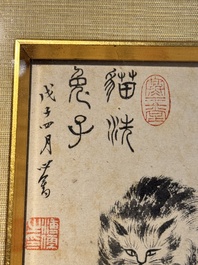 貓洗
兔子
戊子四月心畬